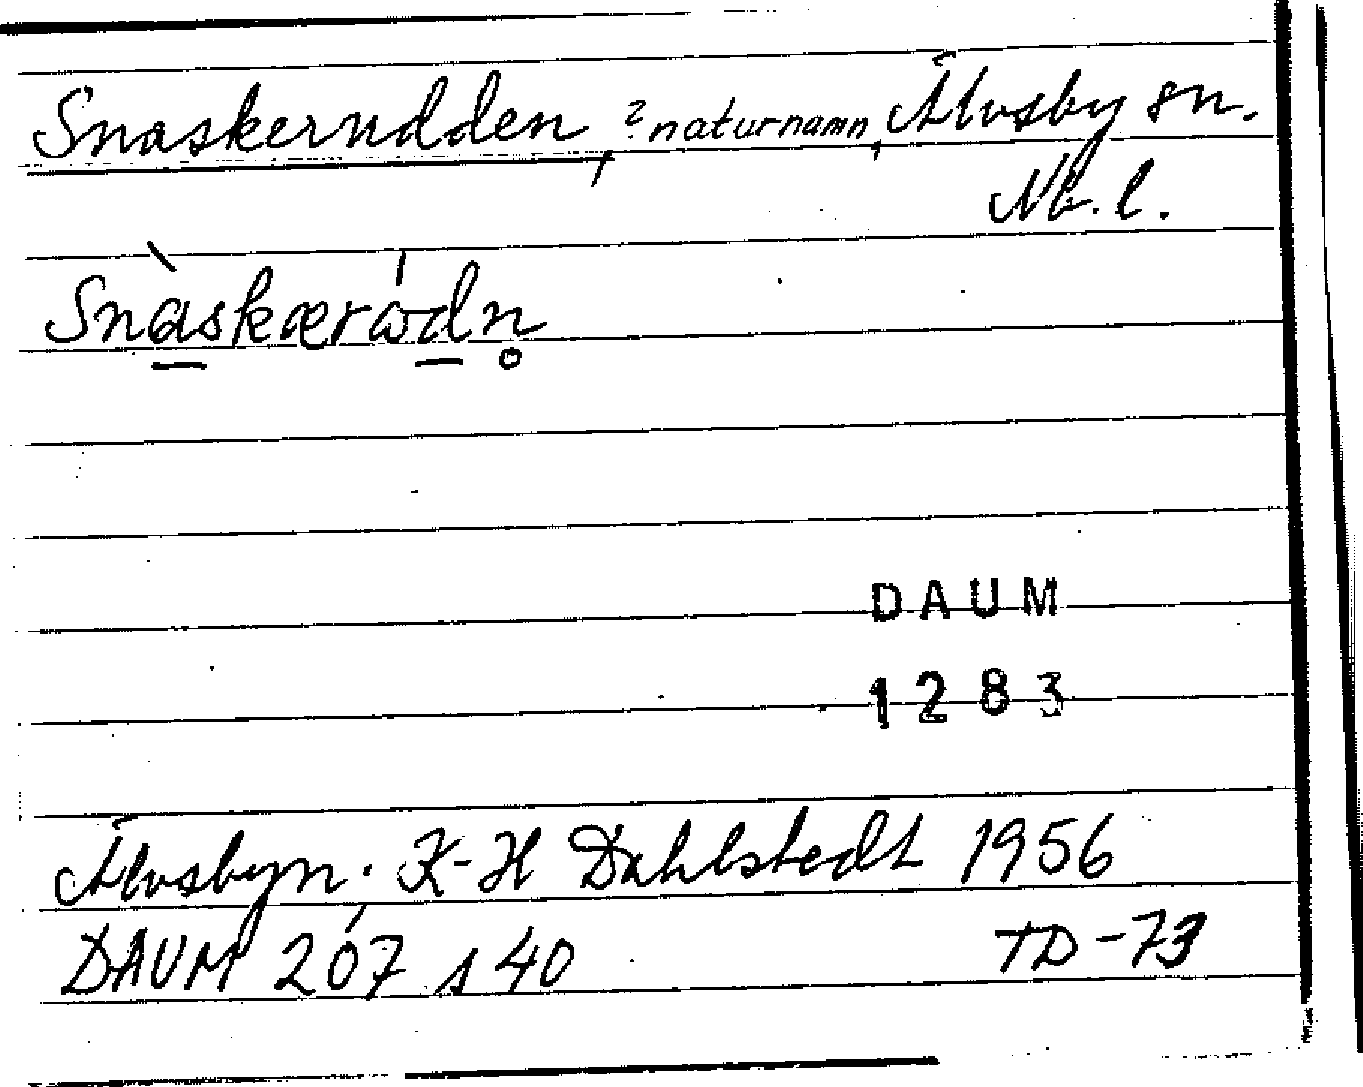 Snaskerudden, ?naturnamn, Älvsby sn.
Nb. l.
Snàskærådn̥
DAUM
1283
Älvsbyn. K-H Dahlstedt 1956
DAUM 267 s 40 TD-73